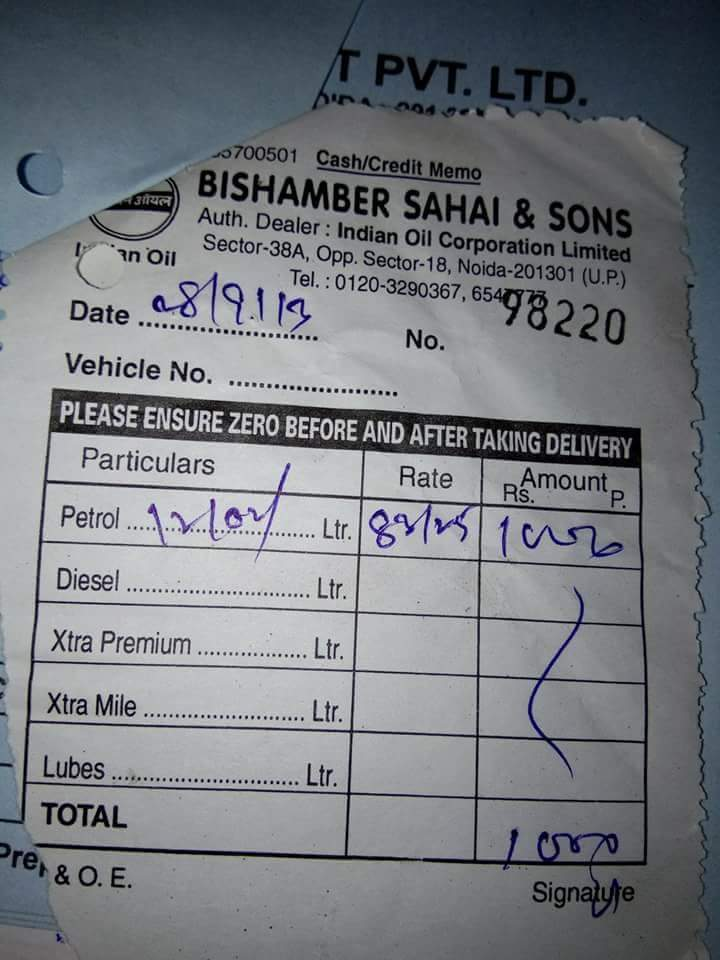 T PVT. LTD.
5700501 Cash/Credit Memo
BISHAMBER SAHAI & SONS
Auth. Dealer : Indian Oil Corporation Limited
Sector-38A, Opp. Sector-18, Noida-201301 (U.P.)
Tel. : 0120-3290367,
Indian Oil
Date 28/9/13
No. 98220
Vehicle No.
PLEASE ENSURE ZERO BEFORE AND AFTER TAKING DELIVERY
Particulars Rate Amount
Rs. P.
Petrol 12/02/ Ltr. 1000
Diesel Ltr.
Xtra Premium Ltr.
Xtra Mile Ltr.
Lubes Ltr.
TOTAL 1000
& O. E.
Signature